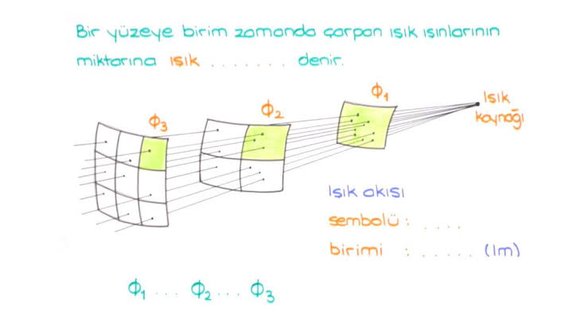 Bir yüzeye birim zamanda çarpan ışık ışınlarının
miktarına ışık . . . . . . . . denir.
Φ1
Φ2
Φ3
Işık
kaynağı
Işık akısı
sembolü : . . . .
birimi : . . . . . . (lm)
Φ1 . . . Φ2 . . . Φ3